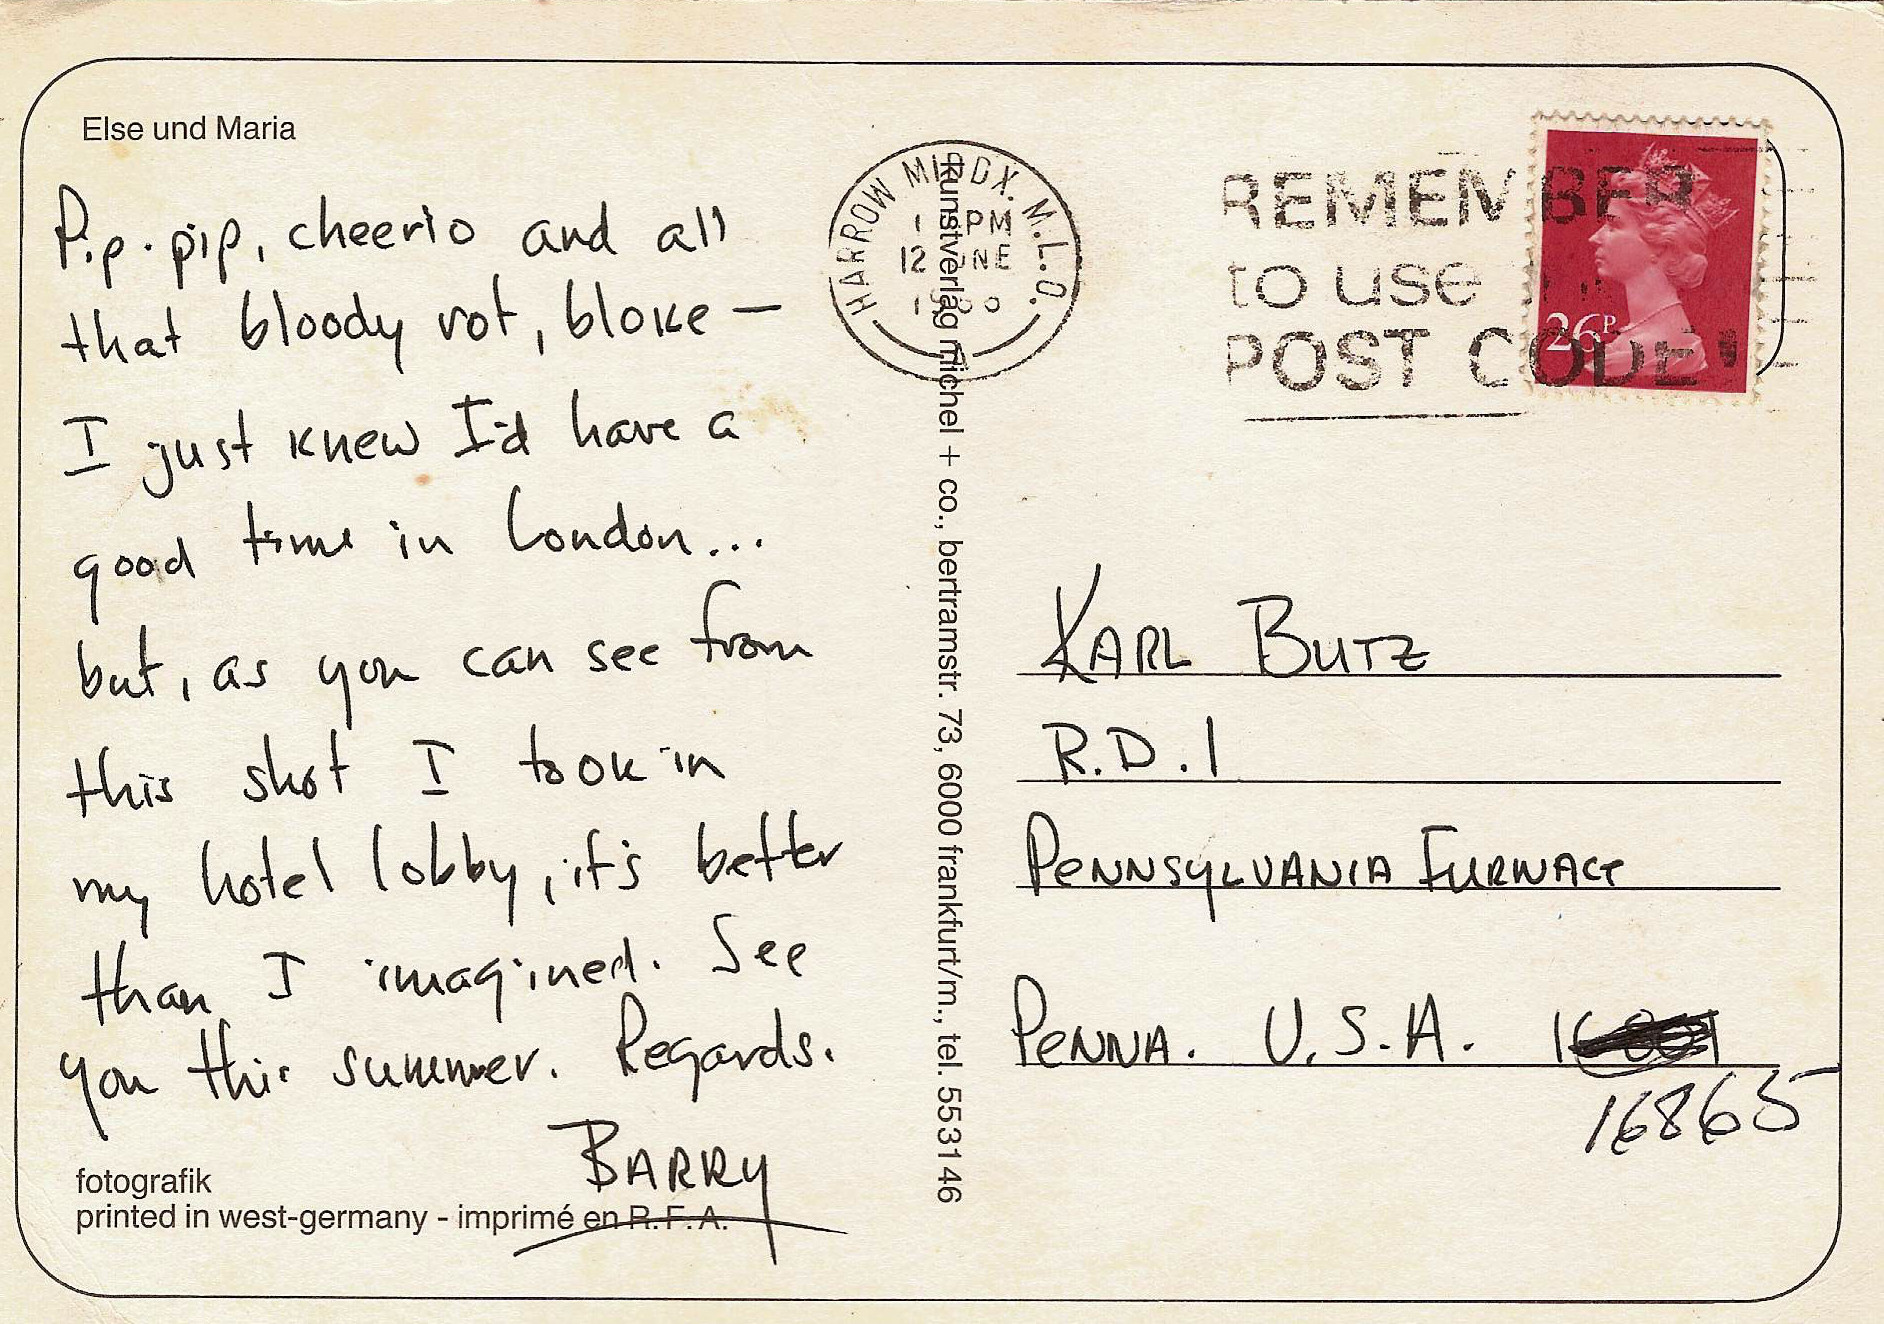 Else und Maria
Pip-pip, cheerio and all
that bloody rot, bloke —
I just knew I'd have a
good time in London...
but, as you can see from
this shot I took in
my hotel lobby, it's better
than I imagined. See
you this summer. Regards.
BARRY
fotografik
printed in west-germany - imprimé en R.F.A.
kunstverlag michel + co., bertramstr. 73, 6000 frankfurt/m., tel. 553146
HARROW MIDDX. M.L.O.
PM
12 JNE
REMEMBER
to use
POST CODE
26P
KARL BUTZ
R.D. 1
PENNSYLVANIA FURNACE
PENNA. U.S.A.
16865